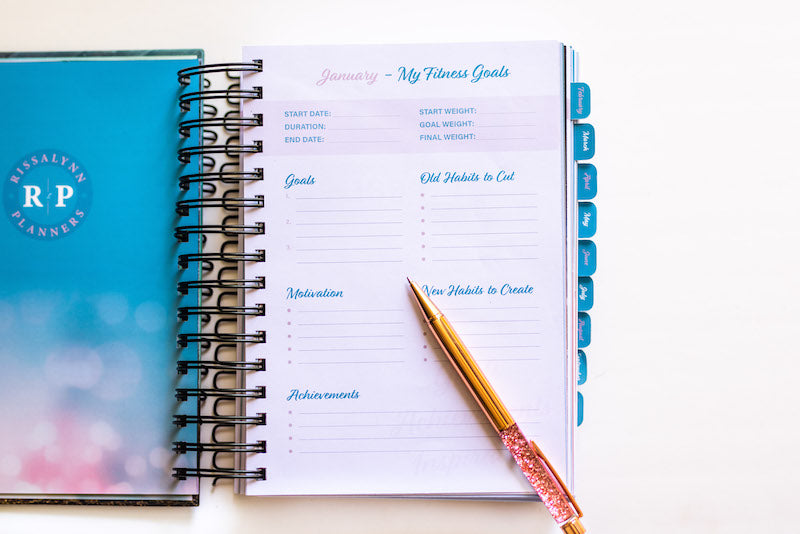 RISSALYNN
R P
PLANNERS
January – My Fitness Goals
START DATE:
DURATION:
END DATE:
START WEIGHT:
GOAL WEIGHT:
FINAL WEIGHT:
Goals
1.
2.
3.
Old Habits to Cut
Motivation
New Habits to Create
Achievements
February
March
April
May
June
July
August